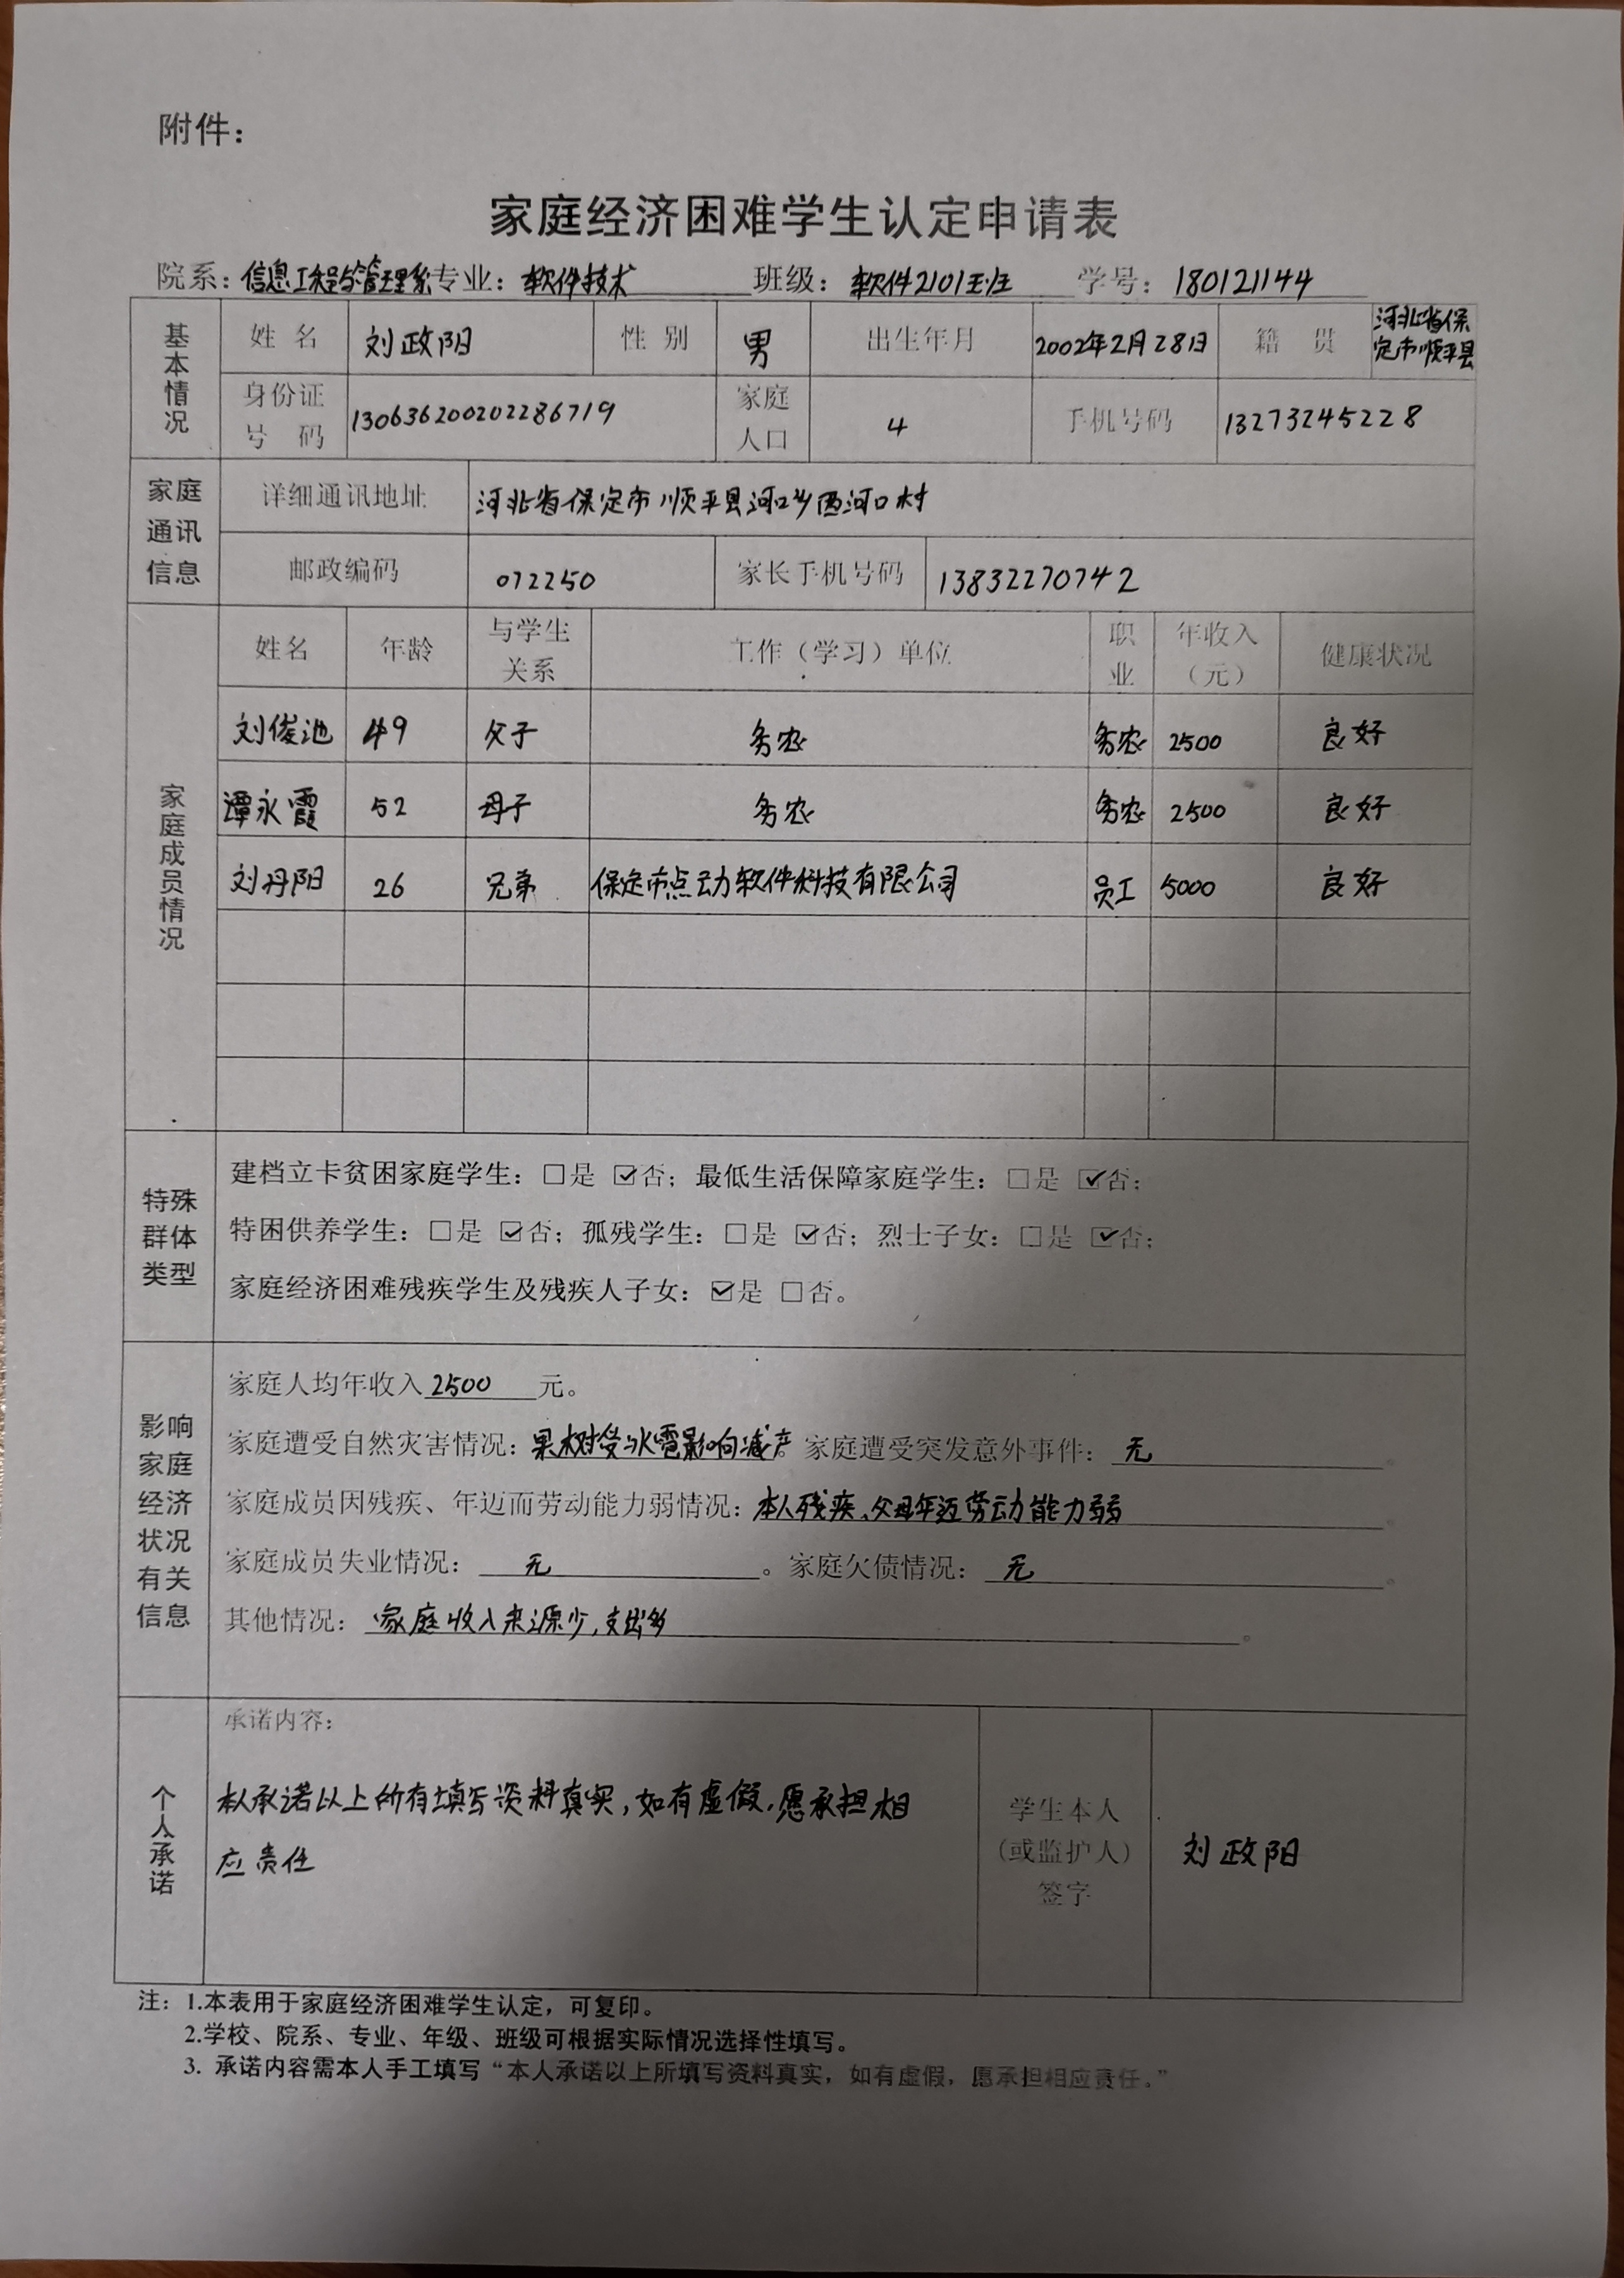 附件：
家庭经济困难学生认定申请表
院系：信息工程与管理系 专业：软件技术 班级：软件2101班 学号：180121144
基本情况
姓 名 刘政阳 性 别 男 出生年月 2002年2月28日 籍 贯 河北省保定市顺平县
身份证号 码 130636200202286719 家庭人口 4 手机号码 13273245228
家庭通讯信息
详细通讯地址 河北省保定市顺平县河口乡西河口村
邮政编码 072250 家长手机号码 13832270742
家庭成员情况
姓名 年龄 与学生关系 工作（学习）单位 职业 年收入（元） 健康状况
刘俊池 49 父子 务农 务农 2500 良好
谭永霞 52 母子 务农 务农 2500 良好
刘丹阳 26 兄弟 保定市点动软件科技有限公司 员工 5000 良好
特殊群体类型
建档立卡贫困家庭学生：□是 ☑否；最低生活保障家庭学生：□是 ☑否；
特困供养学生：□是 ☑否；孤残学生：□是 ☑否；烈士子女：□是 ☑否；
家庭经济困难残疾学生及残疾人子女：☑是 □否。
影响家庭经济状况有关信息
家庭人均年收入2500元。
家庭遭受自然灾害情况：果树受冰雹影响减产。家庭遭受突发意外事件：无。
家庭成员因残疾、年迈而劳动能力弱情况：本人残疾、父母年迈劳动能力弱。
家庭成员失业情况：无。家庭欠债情况：无。
其他情况：家庭收入来源少，支出多。
个人承诺
承诺内容：
本人承诺以上所有填写资料真实，如有虚假，愿承担相
应责任
学生本人（或监护人）签字 刘政阳
注：1.本表用于家庭经济困难学生认定，可复印。
2.学校、院系、专业、年级、班级可根据实际情况选择性填写。
3. 承诺内容需本人手工填写“本人承诺以上所填写资料真实，如有虚假，愿承担相应责任。”